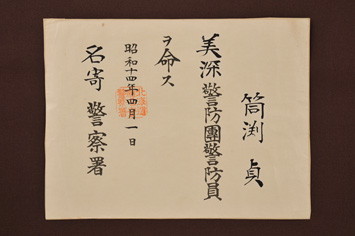 筒渕貞
美深警防團警防員
ヲ命ス
昭和十四年四月一日
名寄警察署